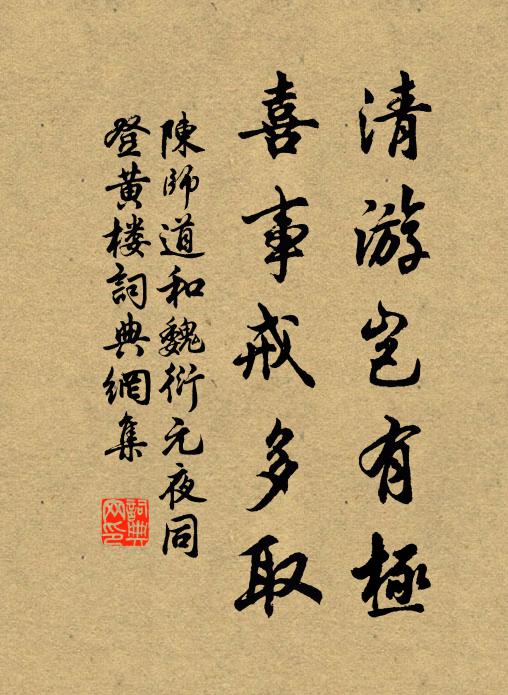 清游岂有極
喜事戒多取
陳師道和魏衍元夜同
登黄楼詞典網集
詞典
网印